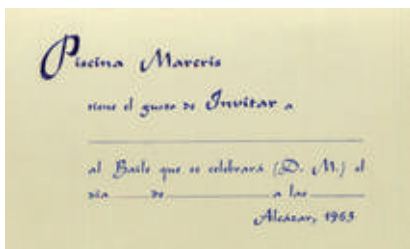 Piscina Mareris
tiene el gusto de Invitar a
al Baile que se celebrará (D. M.) el
día de a las
Alcázar, 1965